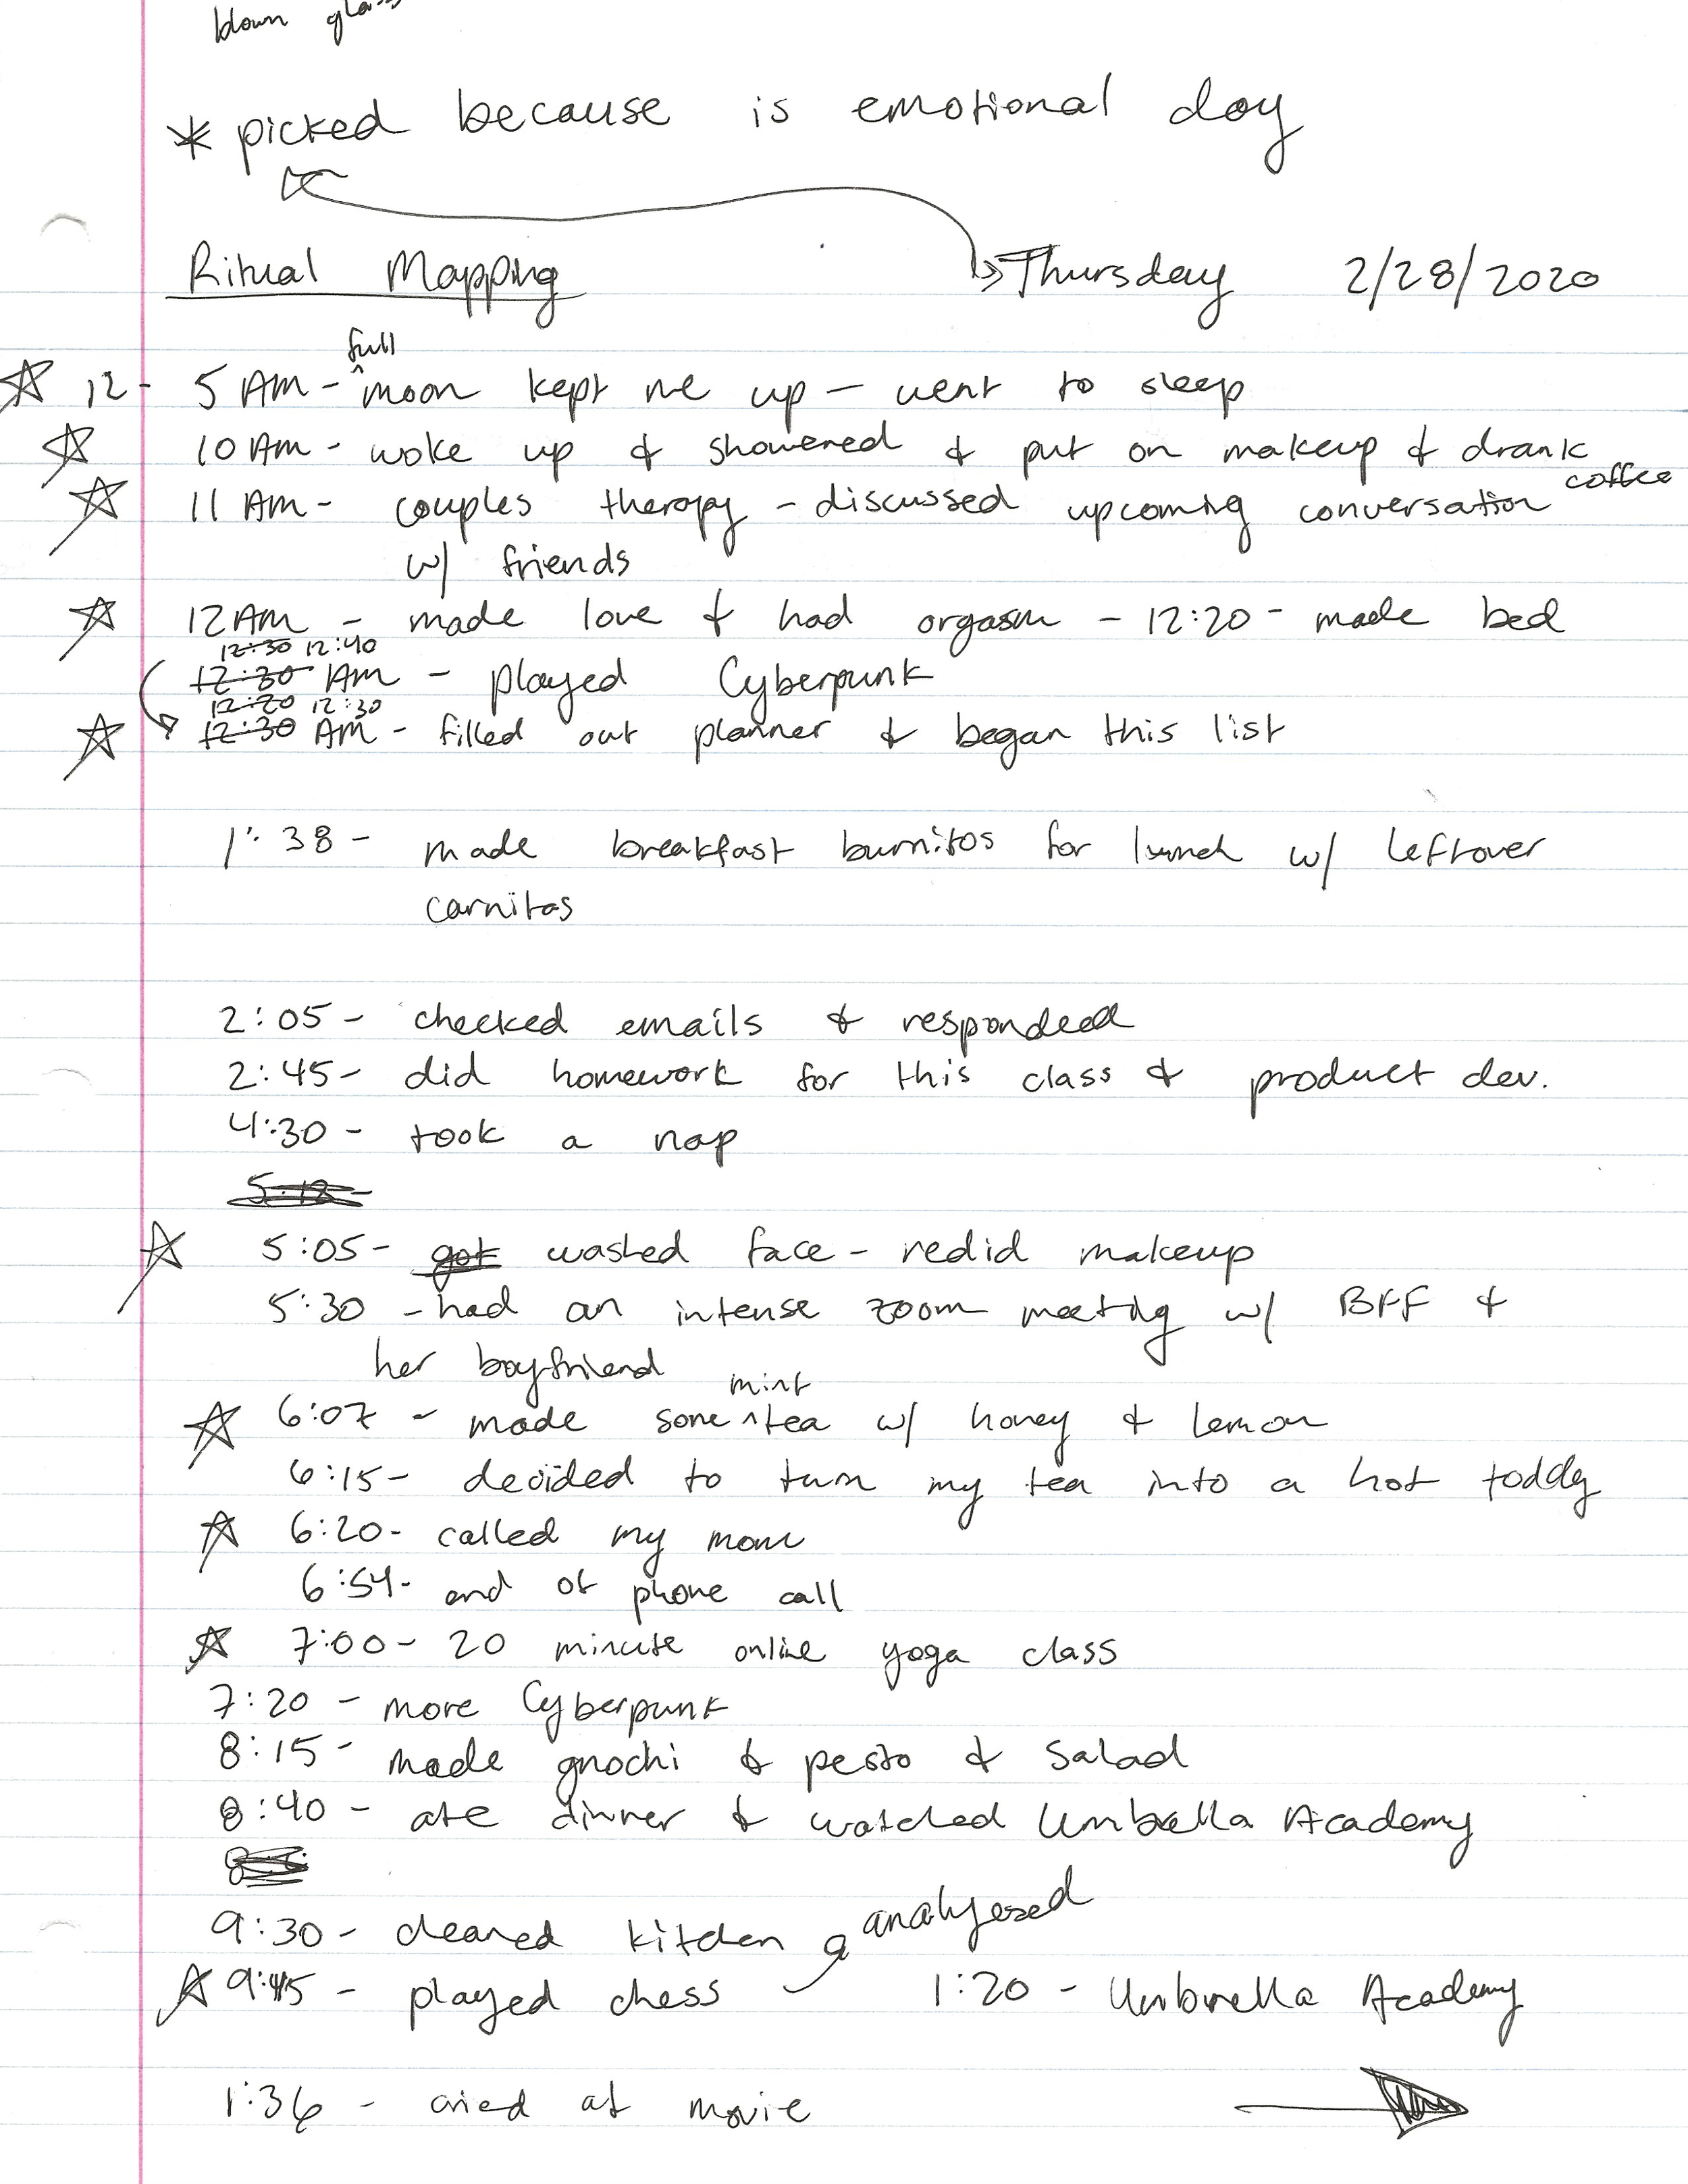 blown glass
* picked because is emotional day
Ritual Mapping Thursday 2/28/2020
full
12- 5 AM - ^moon kept me up - went to sleep
10 AM - woke up & showered & put on makeup & drank
coffee
11 AM - couples therapy - discussed upcoming conversation
w/ friends
12 AM - made love & had orgasm - 12:20 - made bed
12:30 12:40
12:30 AM - played Cyberpunk
12:20 12:30
12:30 AM - filled out planner & began this list
1:38 - made breakfast burritos for lunch w/ leftover
carnitas
2:05 - checked emails & responded
2:45 - did homework for this class & product dev.
4:30 - took a nap
5:18 -
5:05 - got washed face - redid makeup
5:30 - had an intense zoom meeting w/ BFF &
her boyfriend
mint
6:07 - made some ^tea w/ honey & lemon
6:15 - decided to turn my tea into a hot toddy
6:20 - called my mom
6:54 - end of phone call
7:00 - 20 minute online yoga class
7:20 - more Cyberpunk
8:15 - made gnochi & pesto & salad
8:40 - ate dinner & watched Umbrella Academy
9:30 - cleaned kitchen & analyzed
9:45 - played chess 1:20 - Umbrella Academy
1:36 - cried at movie